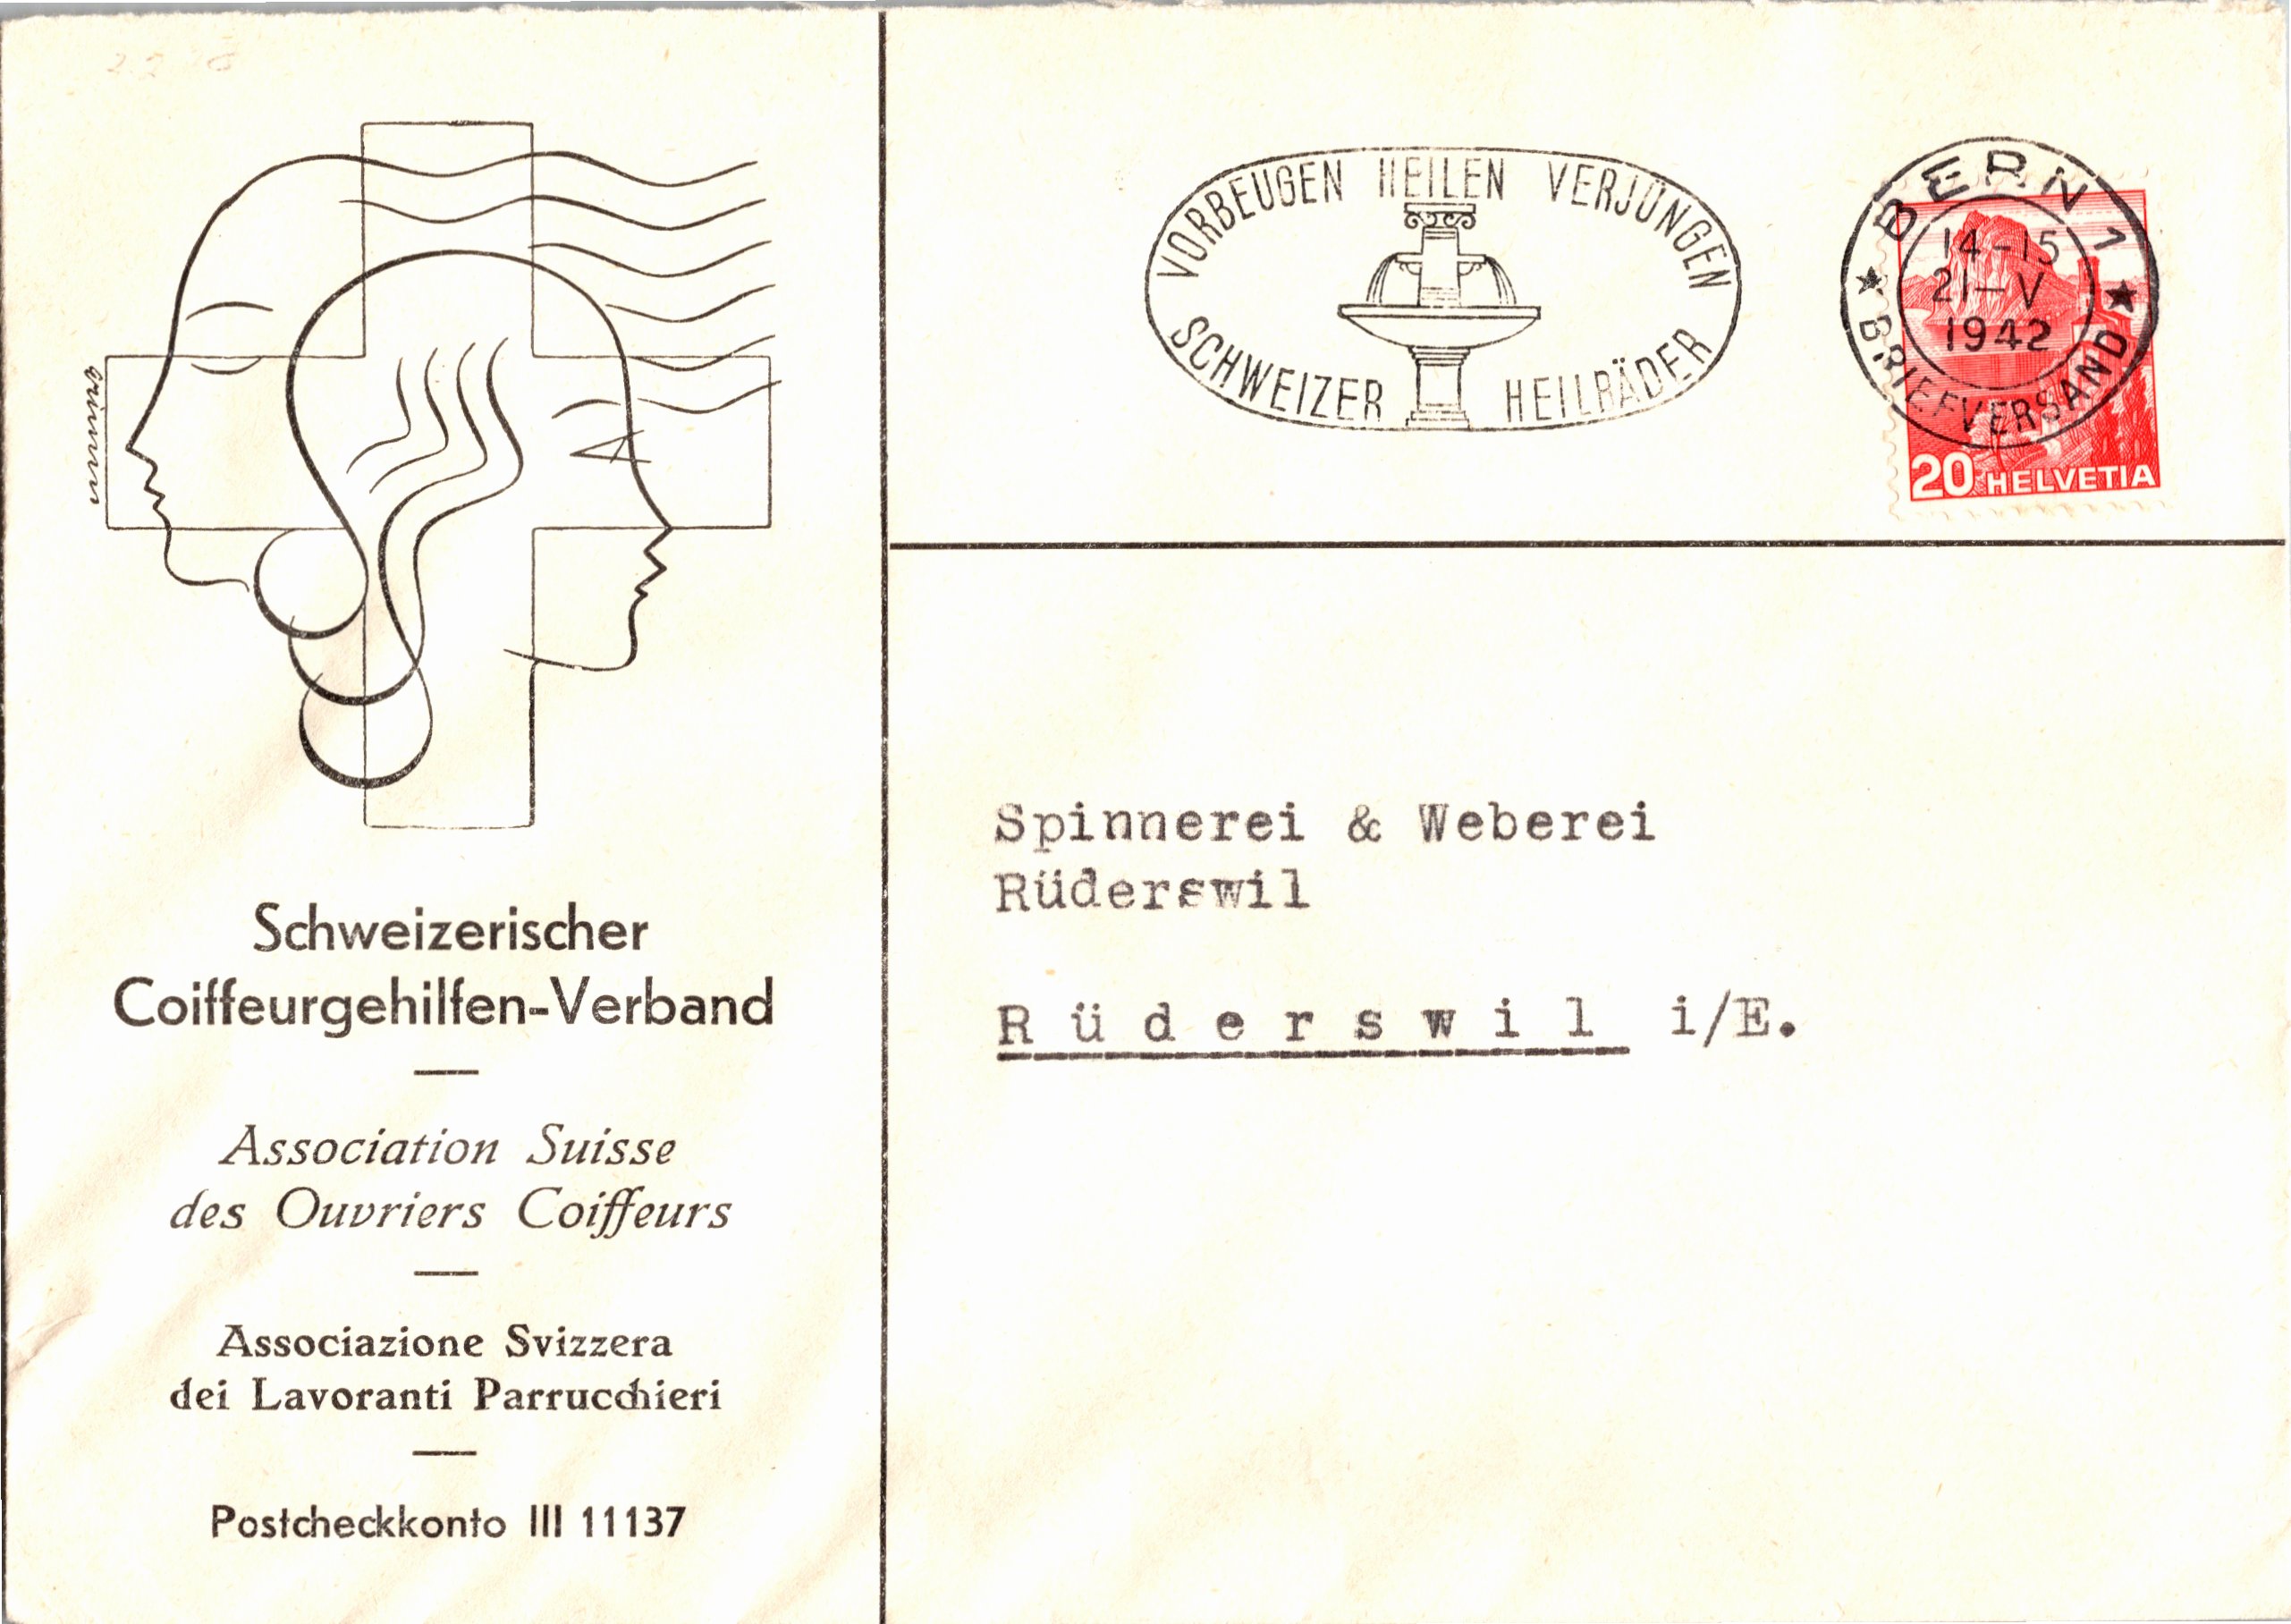 Schweizerischer
Coiffeurgehilfen-Verband
Association Suisse
des Ouvriers Coiffeurs
Associazione Svizzera
dei Lavoranti Parrucchieri
Postcheckkonto III 11137
VORBEUGEN HEILEN VERJÜNGEN
SCHWEIZER HEILBÄDER
BERN 1
14-15
21-V
1942
BRIEFVERSAND
20 HELVETIA
Spinnerei & Weberei
Rüderswil
Rüderswil i/E.